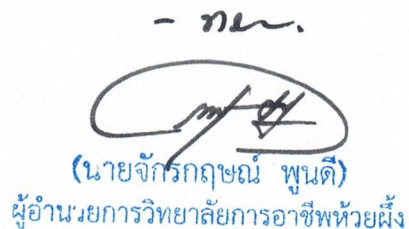 - ทราบ.
(นายจักรกฤษณ์ พูนดี)
ผู้อำนวยการวิทยาลัยการอาชีพห้วยผึ้ง